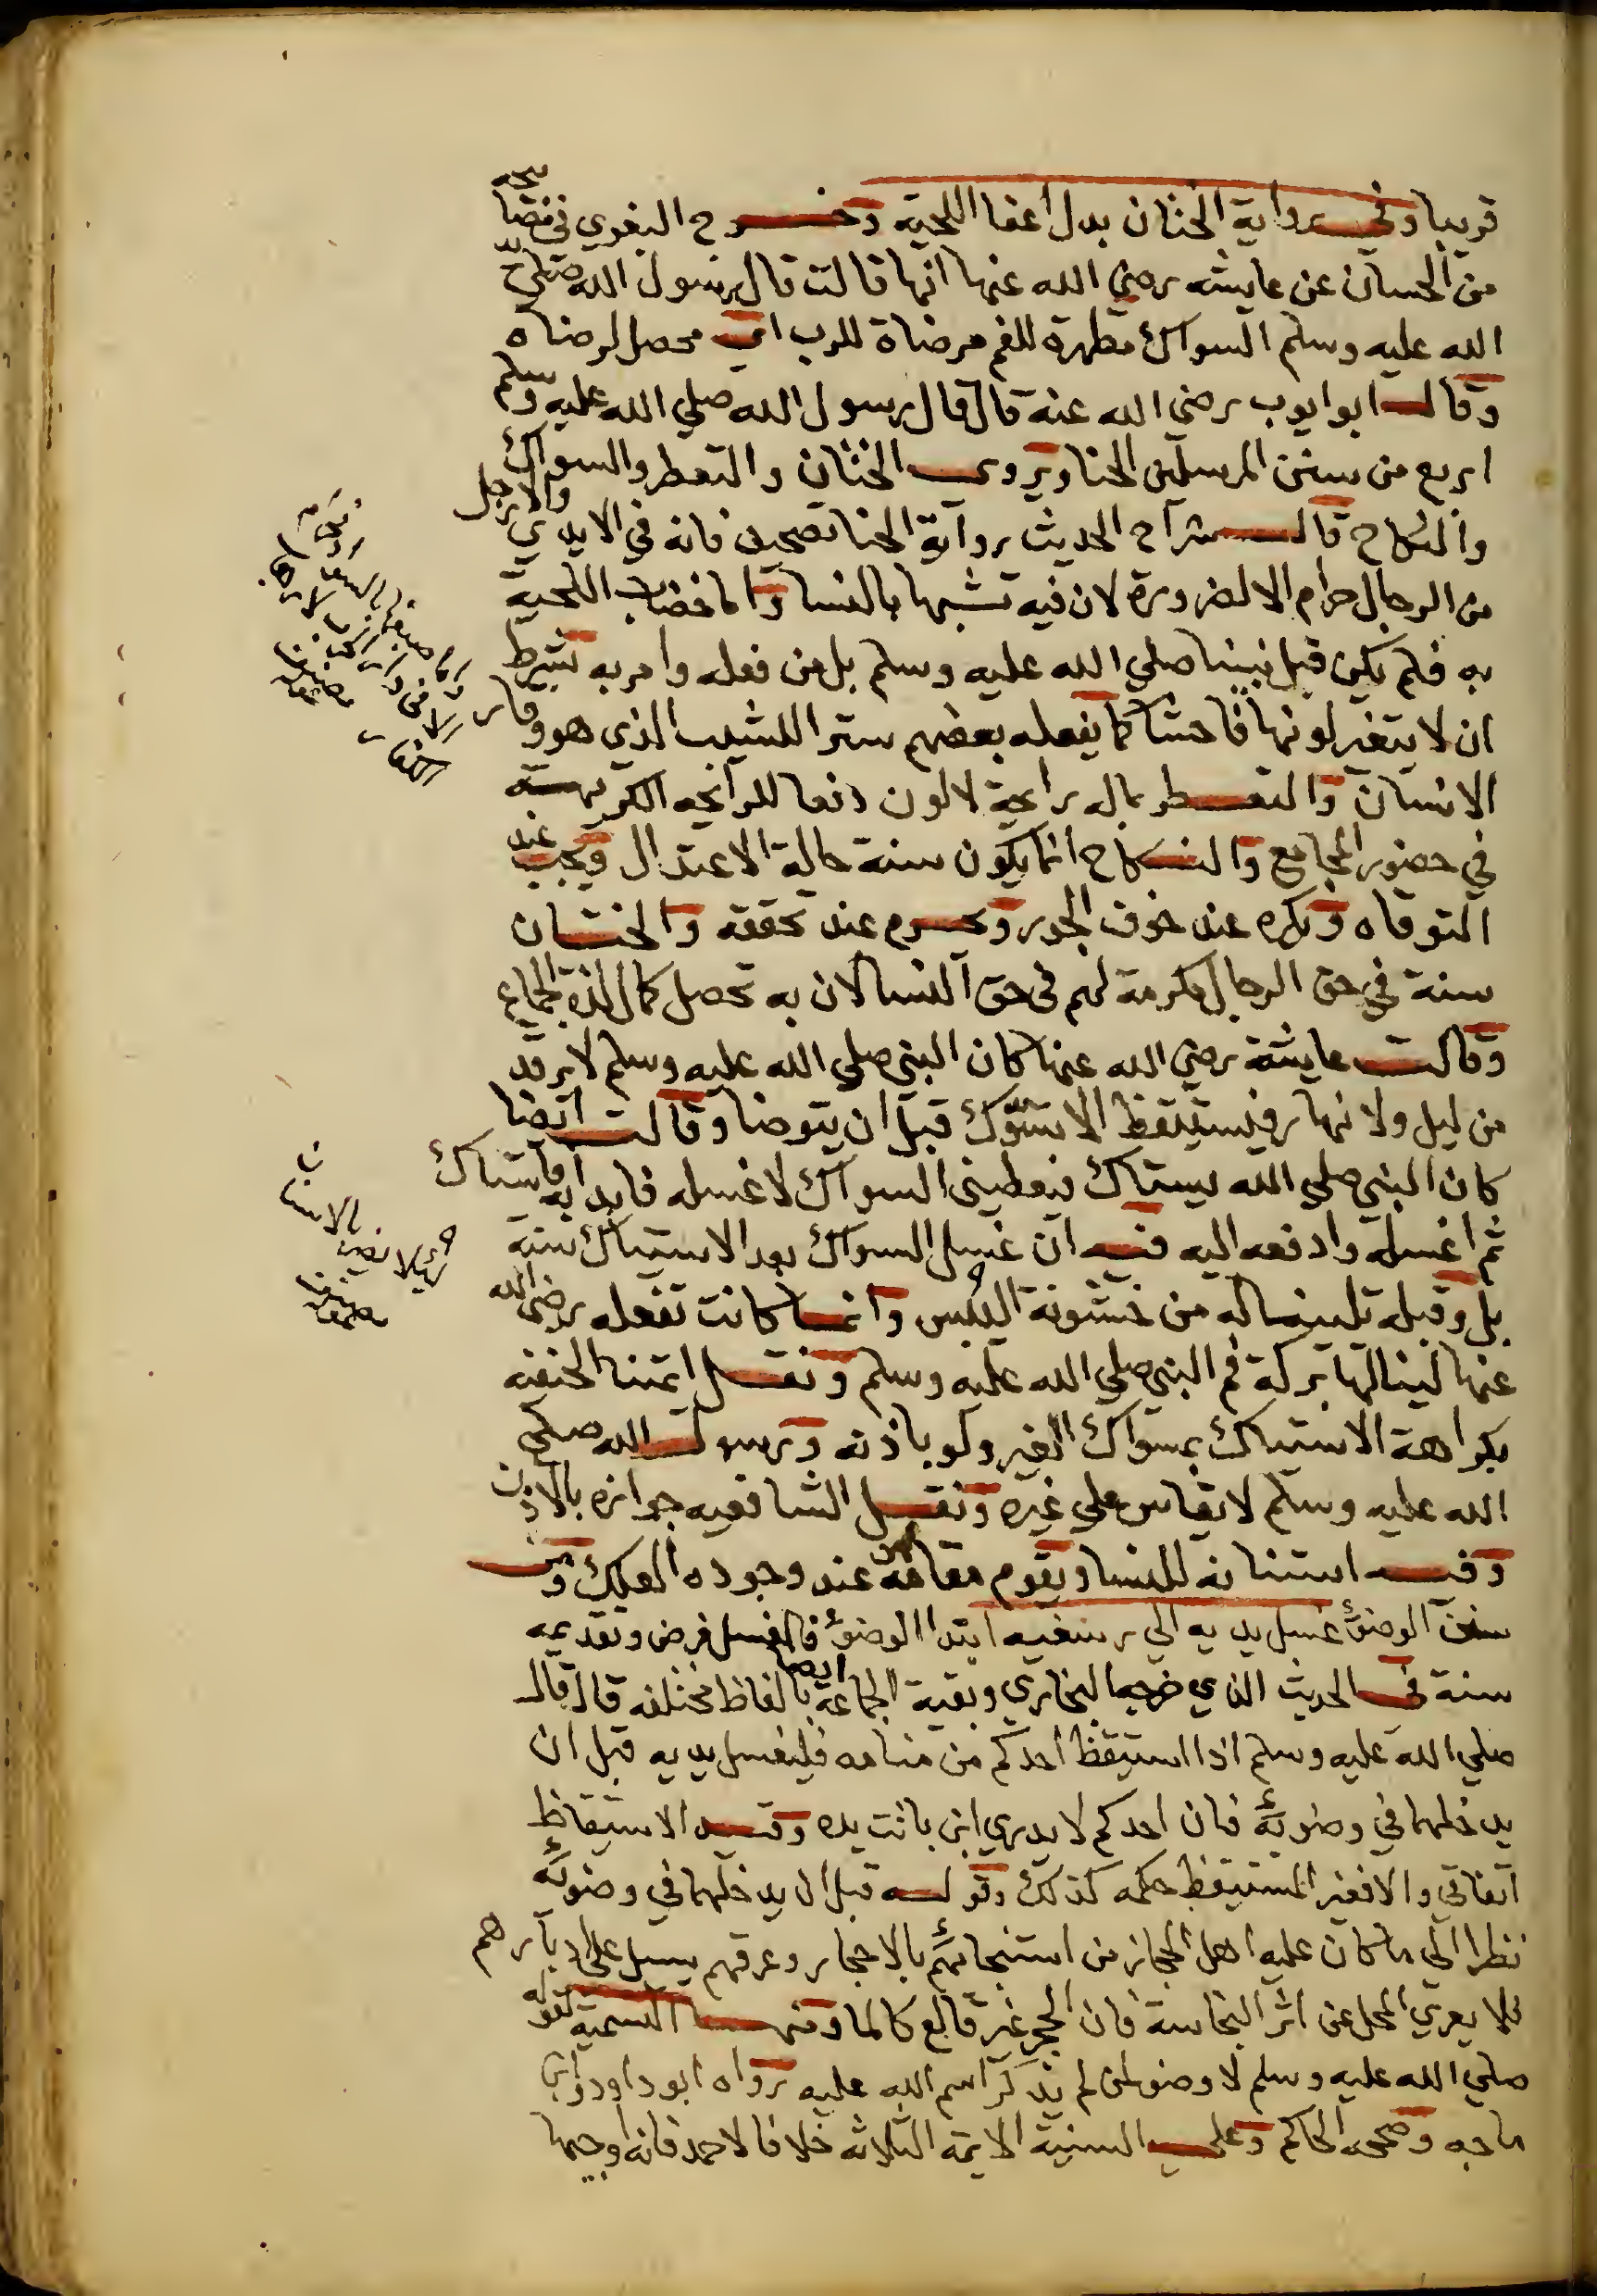 قريبا وفي رواية الختان بدل اعفا اللحية وخرج البغوي في مصابيحه
من الحسان عن عايشه رضي الله عنها انها قالت قال رسول الله صلي
الله عليه وسلم السواك مطهرة للفم مرضاة للرب اي محصل لرضاه
وقال ابو ايوب رضي الله عنه قال قال رسول الله صلي الله عليه وسلم
اربع من سنن المرسلين الحنا ويروى الختان والتعطر والسواك
والنكاح قال شراح الحديث رواية الحنا تصحيف فانه في الايدي والارجل
من الرجال حرام الا لضرورة لان فيه تشبها بالنسا واما خضاب اللحية
به فلم يكن قبل نبينا صلي الله عليه وسلم بل من فعله وامر به بشرط
ان لا يتغير لونها فاحشا كما يفعله بعضهم سترا للشيب الذي هو وقار
الانسان والتعطر بماله رايحة لا لون دفعا للرايحه الكريهة
في حضور المجامع والنكاح انما يكون سنة حالة الاعتدال ويجب عند
التوقاه ويكره عند خوف الجور ويحرم عند تحققه والختان
سنة في حق الرجال مكرمة لهم في حق النسا لان به تحصل كمال لذة الجماع
وقالت عايشة رضي الله عنها كان النبي صلي الله عليه وسلم لا يرقد
من ليل ولا نهار فيستيقظ الا تسوك قبل ان يتوضا وقالت ايضا
كان النبي صلى الله يستاك فيعطيني السواك لاغسله فابدا به فاستاك
ثم اغسله وادفعه اليه فيه ان غسل السواك بعد الاستياك سنة
بل وقبله تليينا له من خشونة اليبس وانما كانت تفعله رضي الله
عنها لينالها بركة فم النبي صلي الله عليه وسلم ونقل ايمتنا الحنفيه
بكراهة الاستياك بسواك الغير ولو باذنه ورسول الله صلي
الله عليه وسلم لا يقاس علي غيره ونقل الشافعيه جوازه بالاذن
وفيه استنانه للنسا ويقوم مقامه عند وجوده العلك ومن
سنن الوضوء غسل يديه الي رسغيه ابتدا الوضوء فالغسل فرض وتقديمه
سنة في الحديث الذي خرجه البخاري وبقية الجماعة ايضا بالفاظ مختلفه قال قال
صلي الله عليه وسلم اذا استيقظ احدكم من منامه فليغسل يديه قبل ان
يدخلهما في وضوئه فان احدكم لا يدري اين باتت يده وقيد الاستيقاظ
اتفاقي والا فغير المستيقظ حكمه كذلك وقوله قبل ان يدخلهما في وضوئه
نظرا الي ما كان عليه اهل الحجاز من استنجائهم بالاحجار وعرقهم يسيل على ادبارهم
فلا يعري المحل عن اثر النجاسة فان الحجر غير قالع كالما ومنها التسمية لقوله
صلي الله عليه وسلم لا وضو لمن لم يذكر اسم الله عليه رواه ابو داود وابن
ماجه وصححه الحاكم وعلي السنية الايمة الثلاثه خلافا لاحمد فانه اوجبها